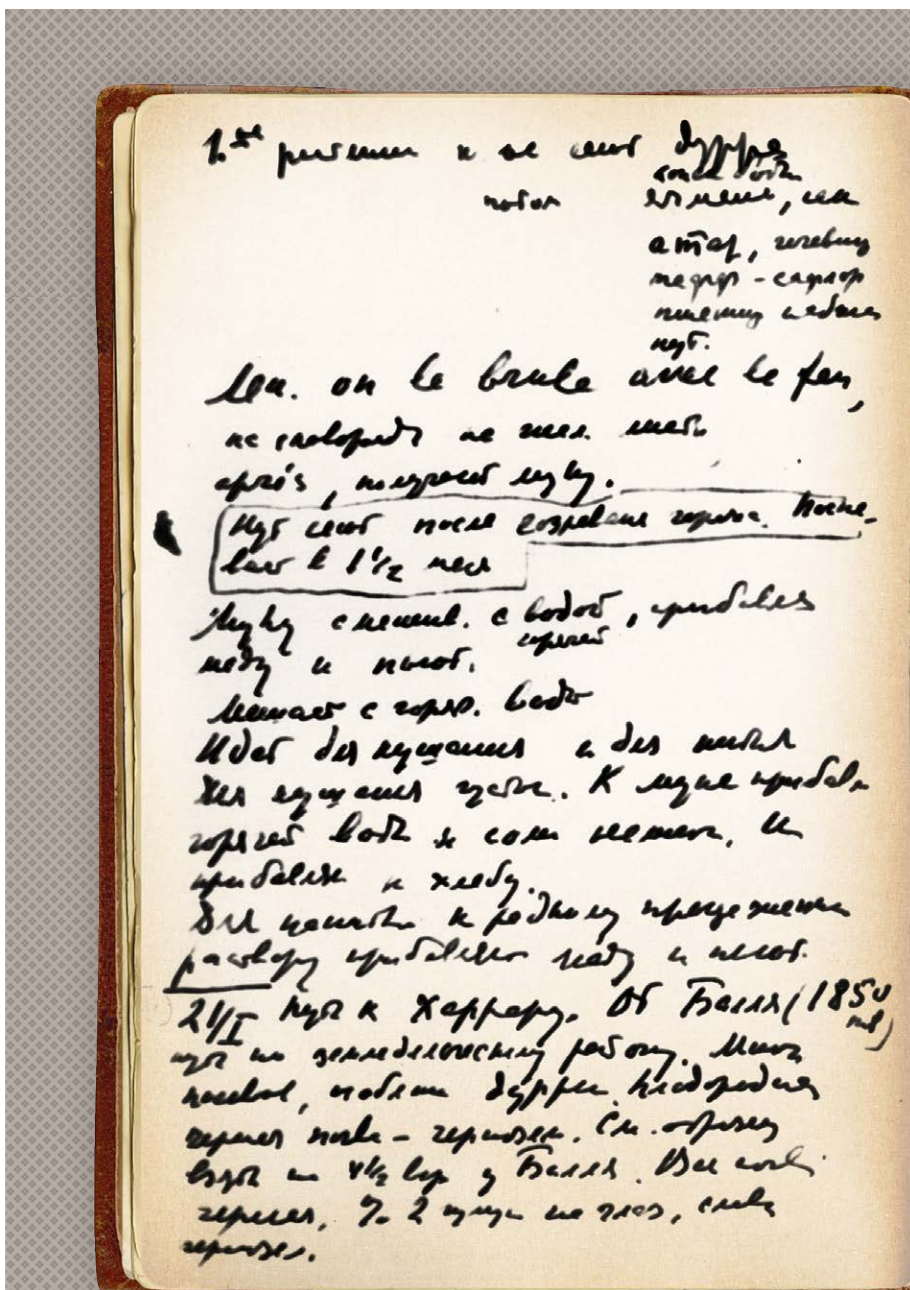 1.ое растения и не сеют дурра
потом ячмень, лен
атар, чечевицу
сафлор
пшеницу
нут.
Лен. on le brule avec le feu,
на сковороде не жел.
après, получают муку.
Нут сеют после созревания гороха. Поспе-
вает в 1 1/2 меся
Муку смешив. с водой, прибавля
горячей
меду и пьют.
Мешают с горяч. водой
Идет для кушания и для питья
Для кушания густая. К муке прибавл
горячей воды и соли немного. И
прибавляю к хлебу.
Для напитка к редкому процеженн
раствору прибавляю меду и пьют.
21/I Путь к Харрару. От Балля (1850
mt)
путь по земледельческому району. Много
посевов, дурры. Плодородная
черная почва - чернозем. См. образец
взят на 4 1/2 вер у Балля. Все
черная, % 2 гумуса на глаз,
чернозем.